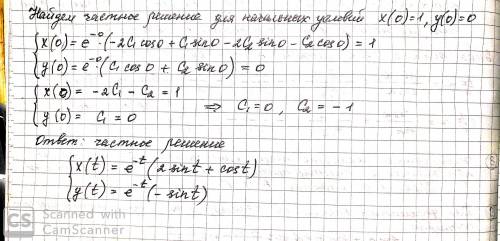 Найдем частное решение для начальных условий x(0)=1, y(0)=0
{x(0)=e^-0·(-2C₁cos0+C₁sin0-2C₂sin0-C₂cos0)=1
{y(0)=e^-0·(C₁cos0+C₂sin0)=0
{x(0)= -2C₁-C₂=1
⇒ C₁=0, C₂=-1
{y(0)= C₁=0
Ответ: частное решение
{x(t)=e^-t(2sint+cost)
{y(t)=e^-t(-sint)
CS Scanned with
CamScanner